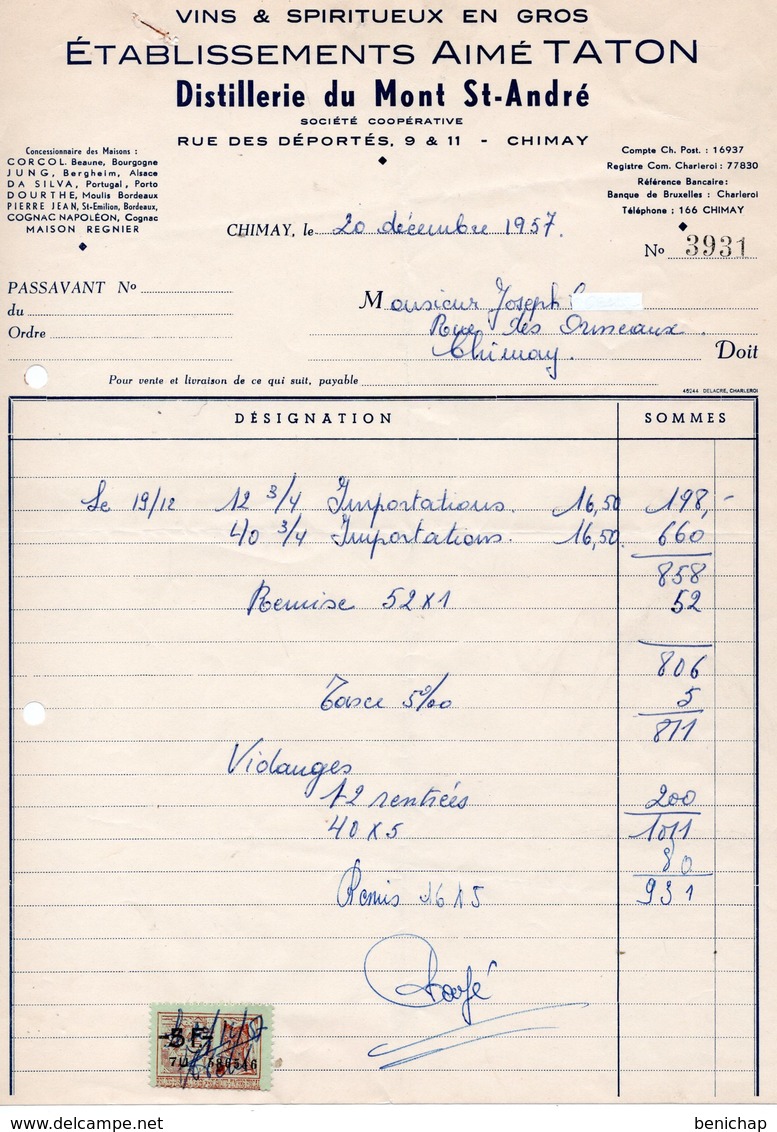 VINS & SPIRITUEUX EN GROS
ÉTABLISSEMENTS AIMÉ TATON
Distillerie du Mont St-André
SOCIÉTÉ COOPÉRATIVE
RUE DES DÉPORTÉS, 9 & 11 - CHIMAY
Concessionnaire des Maisons :
CORCOL. Beaune, Bourgogne
JUNG, Bergheim, Alsace
DA SILVA, Portugal, Porto
DOURTHE, Moulis Bordeaux
PIERRE JEAN, St-Emilion, Bordeaux,
COGNAC NAPOLÉON, Cognac
MAISON REGNIER
Compte Ch. Post. : 16937
Registre Com. Charleroi : 77830
Référence Bancaire:
Banque de Bruxelles : Charleroi
Téléphone : 166 CHIMAY
CHIMAY, le 20 décembre 1957.
No 3931
PASSAVANT No
du
Ordre
Monsieur Joseph
Rue des Ormeaux.
Chimay. Doit
Pour vente et livraison de ce qui suit, payable
45244 DELACRE, CHARLEROI
DÉSIGNATION SOMMES
Le 19/12 12 3/4 Importations. 16,50 198,-
40 3/4 Importations. 16,50. 660
858
Remise 52 x 1 52
806
Taxe 5 0/00 5
811
Vidanges
12 rentrées 200
40 x 5 1011
80
Remis 16 x 5 931
Payé
3 F
586546
benichap